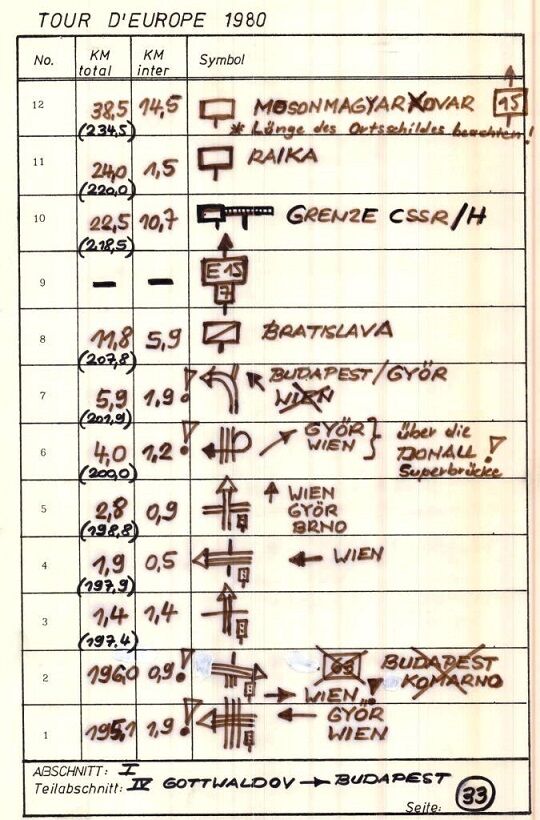 TOUR D'EUROPE 1980
No. KM total KM inter Symbol
12 38,5 14,5 MOSONMAGYARXOVAR 15
(234,5) * Länge des Ortsschildes beachten!
11 24,0 1,5 RAIKA
(220,0)
10 22,5 10,7 GRENZE CSSR/H
(218,5)
9 — — E15
7
8 11,8 5,9 BRATISLAVA
(207,8)
7 5,9 1,9 ! BUDAPEST/GYÖR
(201,9) WIEN
6 4,0 1,2 ! GYÖR über die
(200,0) WIEN DONAU !
Superbrücke
5 2,8 0,9 WIEN
(198,8) GYÖR
BRNO
4 1,9 0,5 WIEN
(197,9)
3 1,4 1,4
(197,4)
2 196,0 0,9 ! 63 BUDAPEST
KOMARNO
WIEN !
1 195,1 1,9 ! GYÖR
WIEN
ABSCHNITT: I
Teilabschnitt: IV GOTTWALDOV → BUDAPEST
Seite: 33